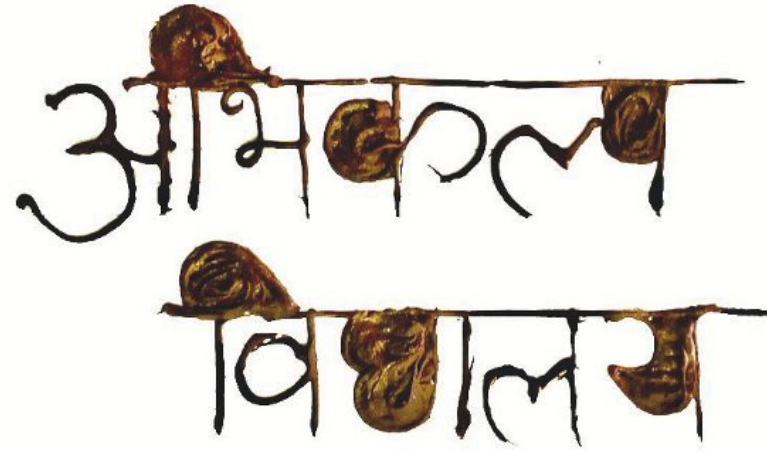 अभिकल्प
विद्यालय